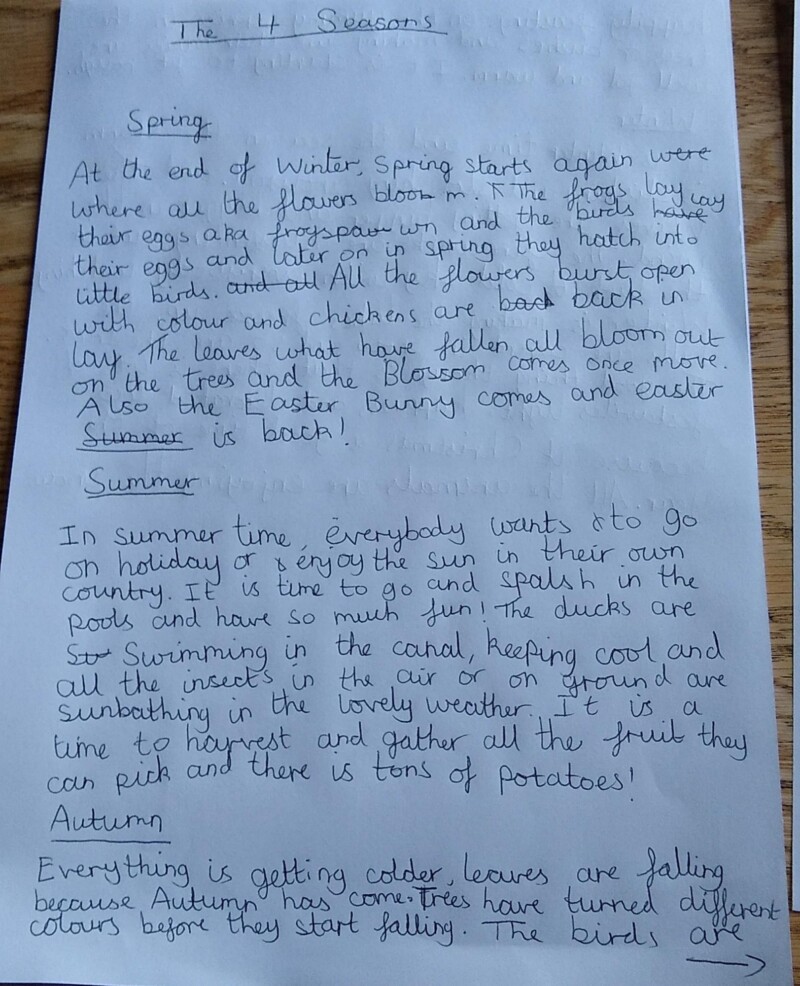 The 4 Seasons
Spring
At the end of Winter, Spring starts again were
where all the flowers bloom. The frogs lay
their eggs aka frogspawn and the birds have lay
their eggs and later on in spring they hatch into
little birds. and all All the flowers burst open
with colour and chickens are back back in
lay. The leaves what have fallen all bloom out
on the trees and the Blossom comes once more.
Also the Easter Bunny comes and easter
Summer is back!
Summer
In summer time, everybody wants to go
on holiday or enjoy the sun in their own
country. It is time to go and spalsh in the
pools and have so much fun! The ducks are
Su Swimming in the canal, keeping cool and
all the insects in the air or on ground are
sunbathing in the lovely weather. It is a
time to harvest and gather all the fruit they
can pick and there is tons of potatoes!
Autumn
Everything is getting colder, leaves are falling
because Autumn has come. Trees have turned different
colours before they start falling. The birds are
→